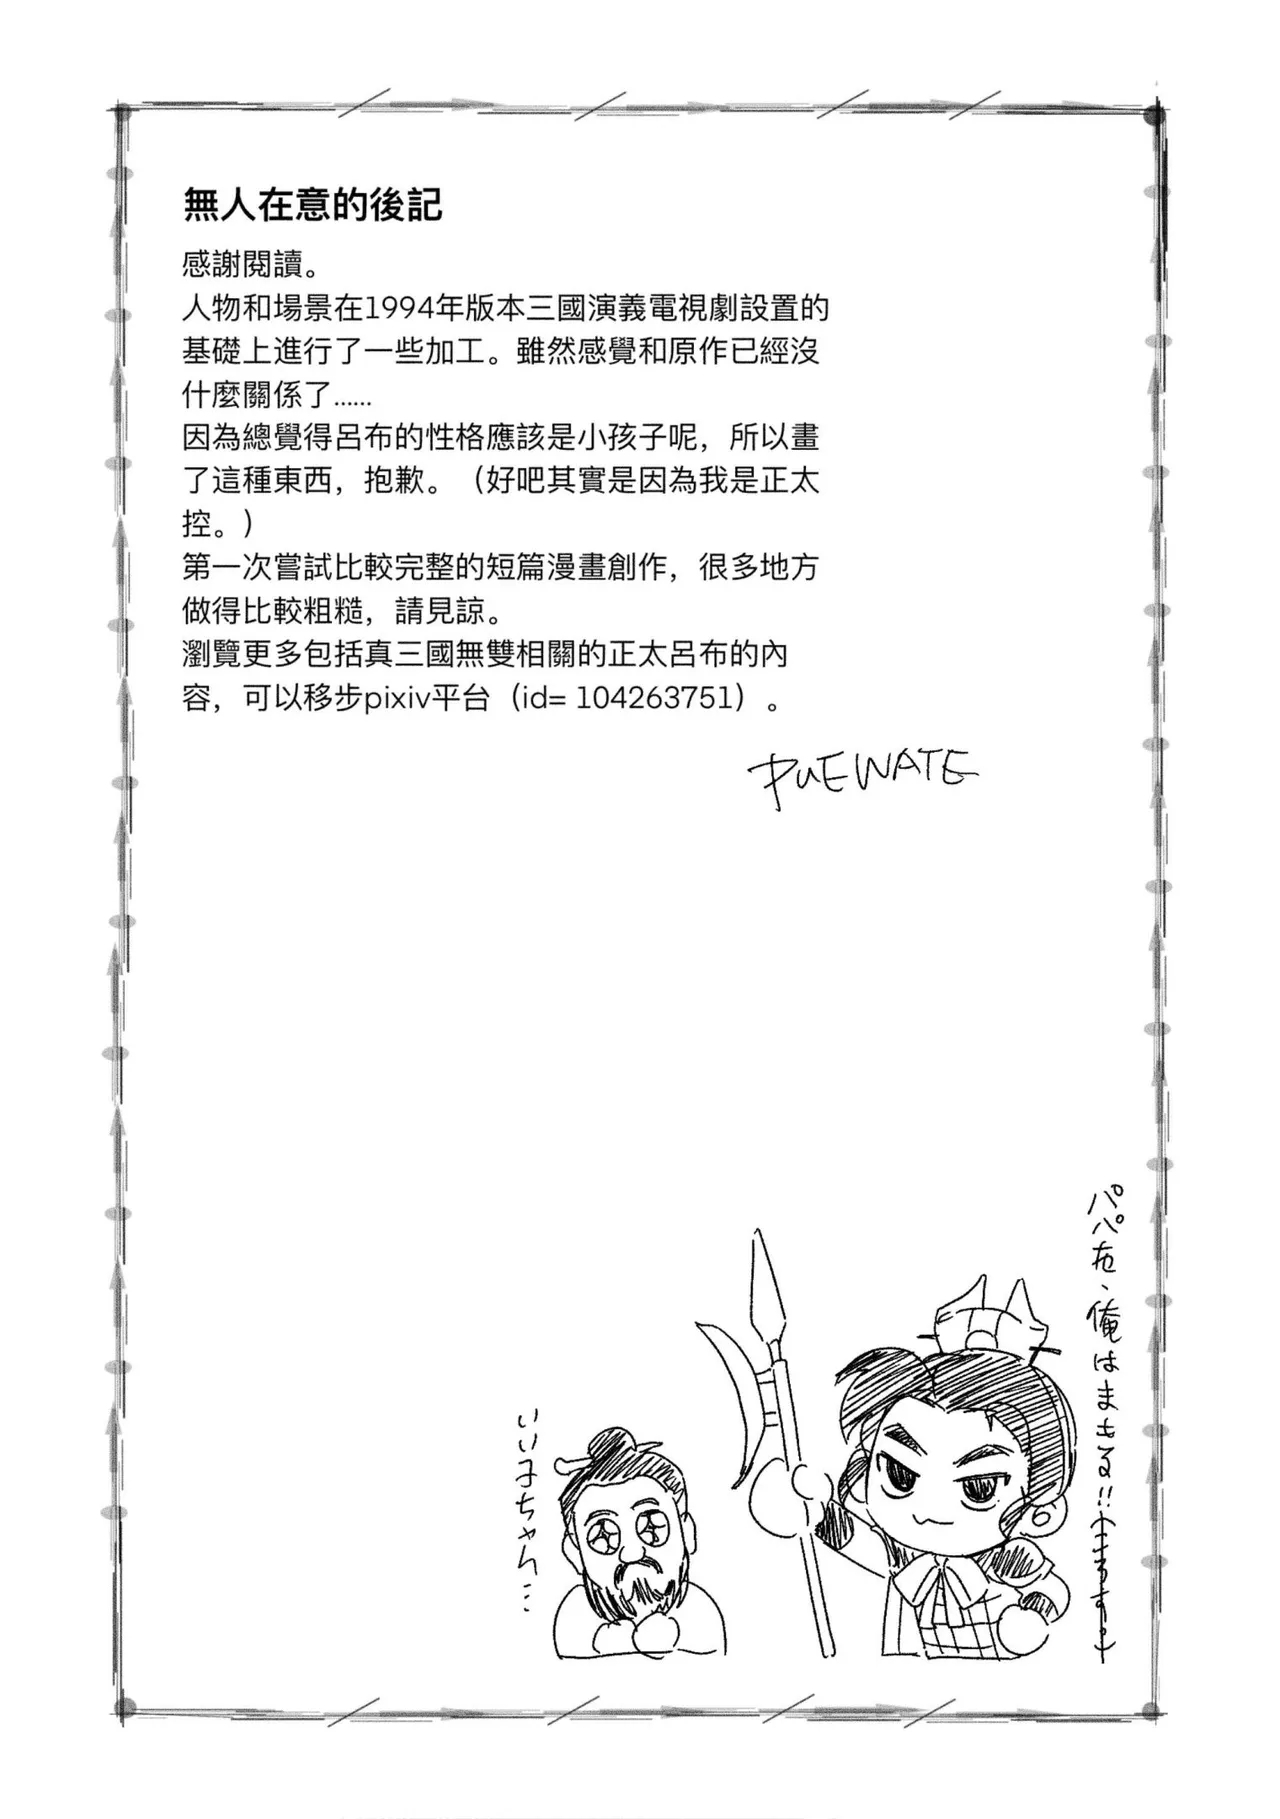 無人在意的後記
感謝閱讀。
人物和場景在1994年版本三國演義電視劇設置的
基礎上進行了一些加工。雖然感覺和原作已經沒
什麼關係了......
因為總覺得呂布的性格應該是小孩子呢，所以畫
了這種東西，抱歉。（好吧其實是因為我是正太
控。）
第一次嘗試比較完整的短篇漫畫創作，很多地方
做得比較粗糙，請見諒。
瀏覽更多包括真三國無雙相關的正太呂布的內
容，可以移步pixiv平台（id= 104263751）。
PUEWATE
パパを、俺はまもる!!
いい子ちゃん…